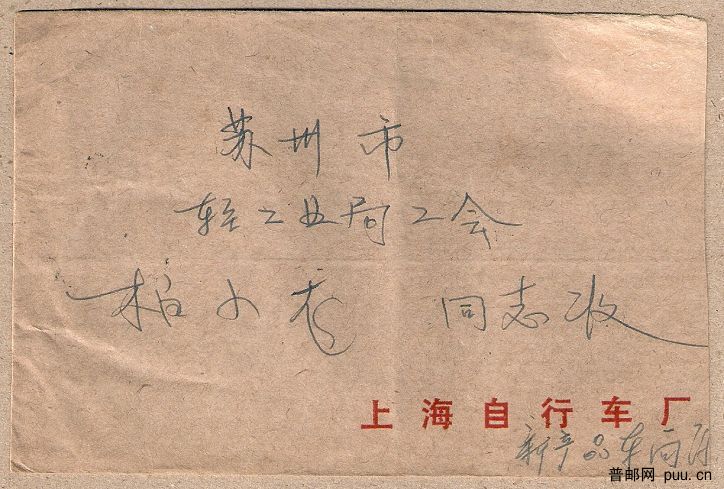 苏州市
轻工业局工会
柏小龙 同志收
上海自行车厂
新产品车间
普邮网 puu.cn